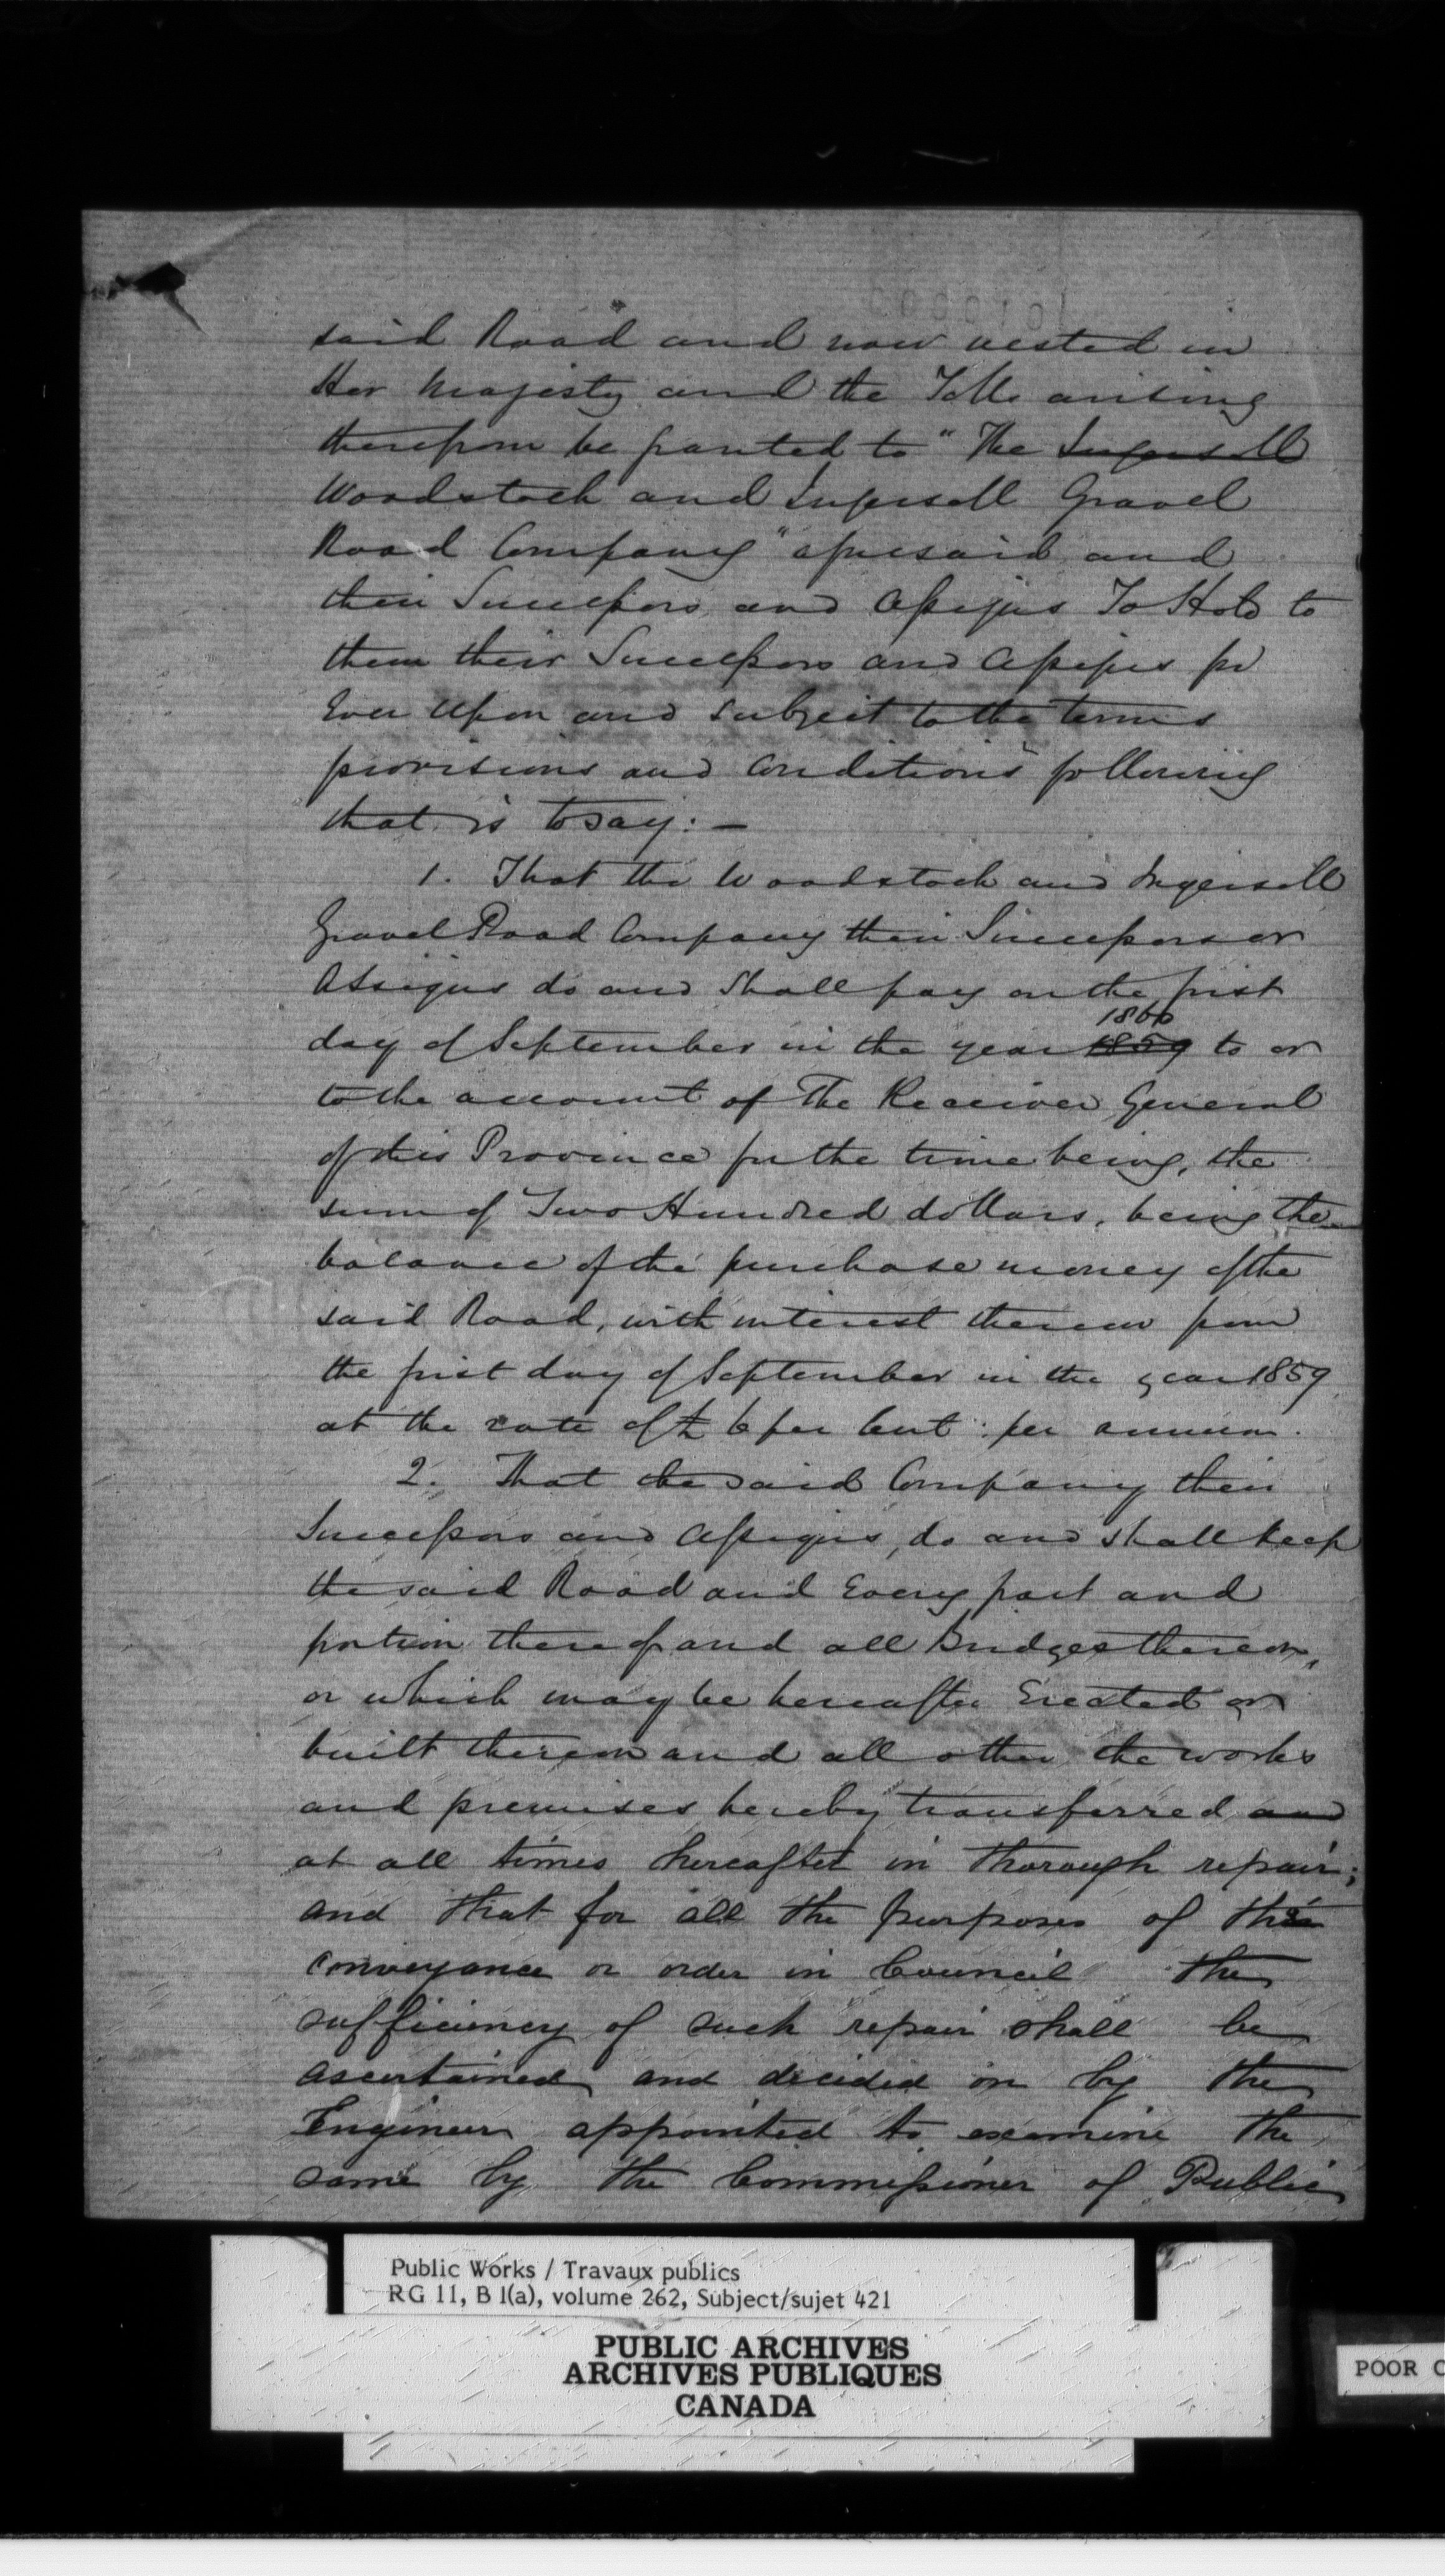 said Road and now vested in
Her Majesty and the Tolls arising
therefrom be granted to "The Ingersoll
Woodstock and Ingersoll Gravel
Road Company" aforesaid and
their Successors and Assigns To Hold to
them their Successors and Assigns for
Ever upon and subject to the terms
provisions and conditions following
that is to say: —
1. That the Woodstock and Ingersoll
Gravel Road Company their Successors or
Assigns do and shall pay on the first
1860
day of September in the year 1859 to or
to the account of The Receiver General
of this Province for the time being, the
sum of Two Hundred dollars, being the
balance of the purchase money of the
said Road, with interest thereon from
the first day of September in the year 1859
at the rate of 6 per Cent: per annum.
2. That the said Company their
Successors and Assigns, do and shall keep
the said Road and Every part and
portion thereof and all Bridges thereon,
or which may be hereafter Erected or
built thereon and all other the works
and premises hereby transferred and
at all times hereafter in thorough repair;
and that for all the purposes of this
conveyance or order in Council the
sufficiency of such repair shall be
ascertained and decided on by the
Engineer appointed to examine the
same by the Commissioner of Public
Public Works / Travaux publics
RG 11, B 1(a), volume 262, Subject/sujet 421
PUBLIC ARCHIVES
ARCHIVES PUBLIQUES
CANADA
POOR C